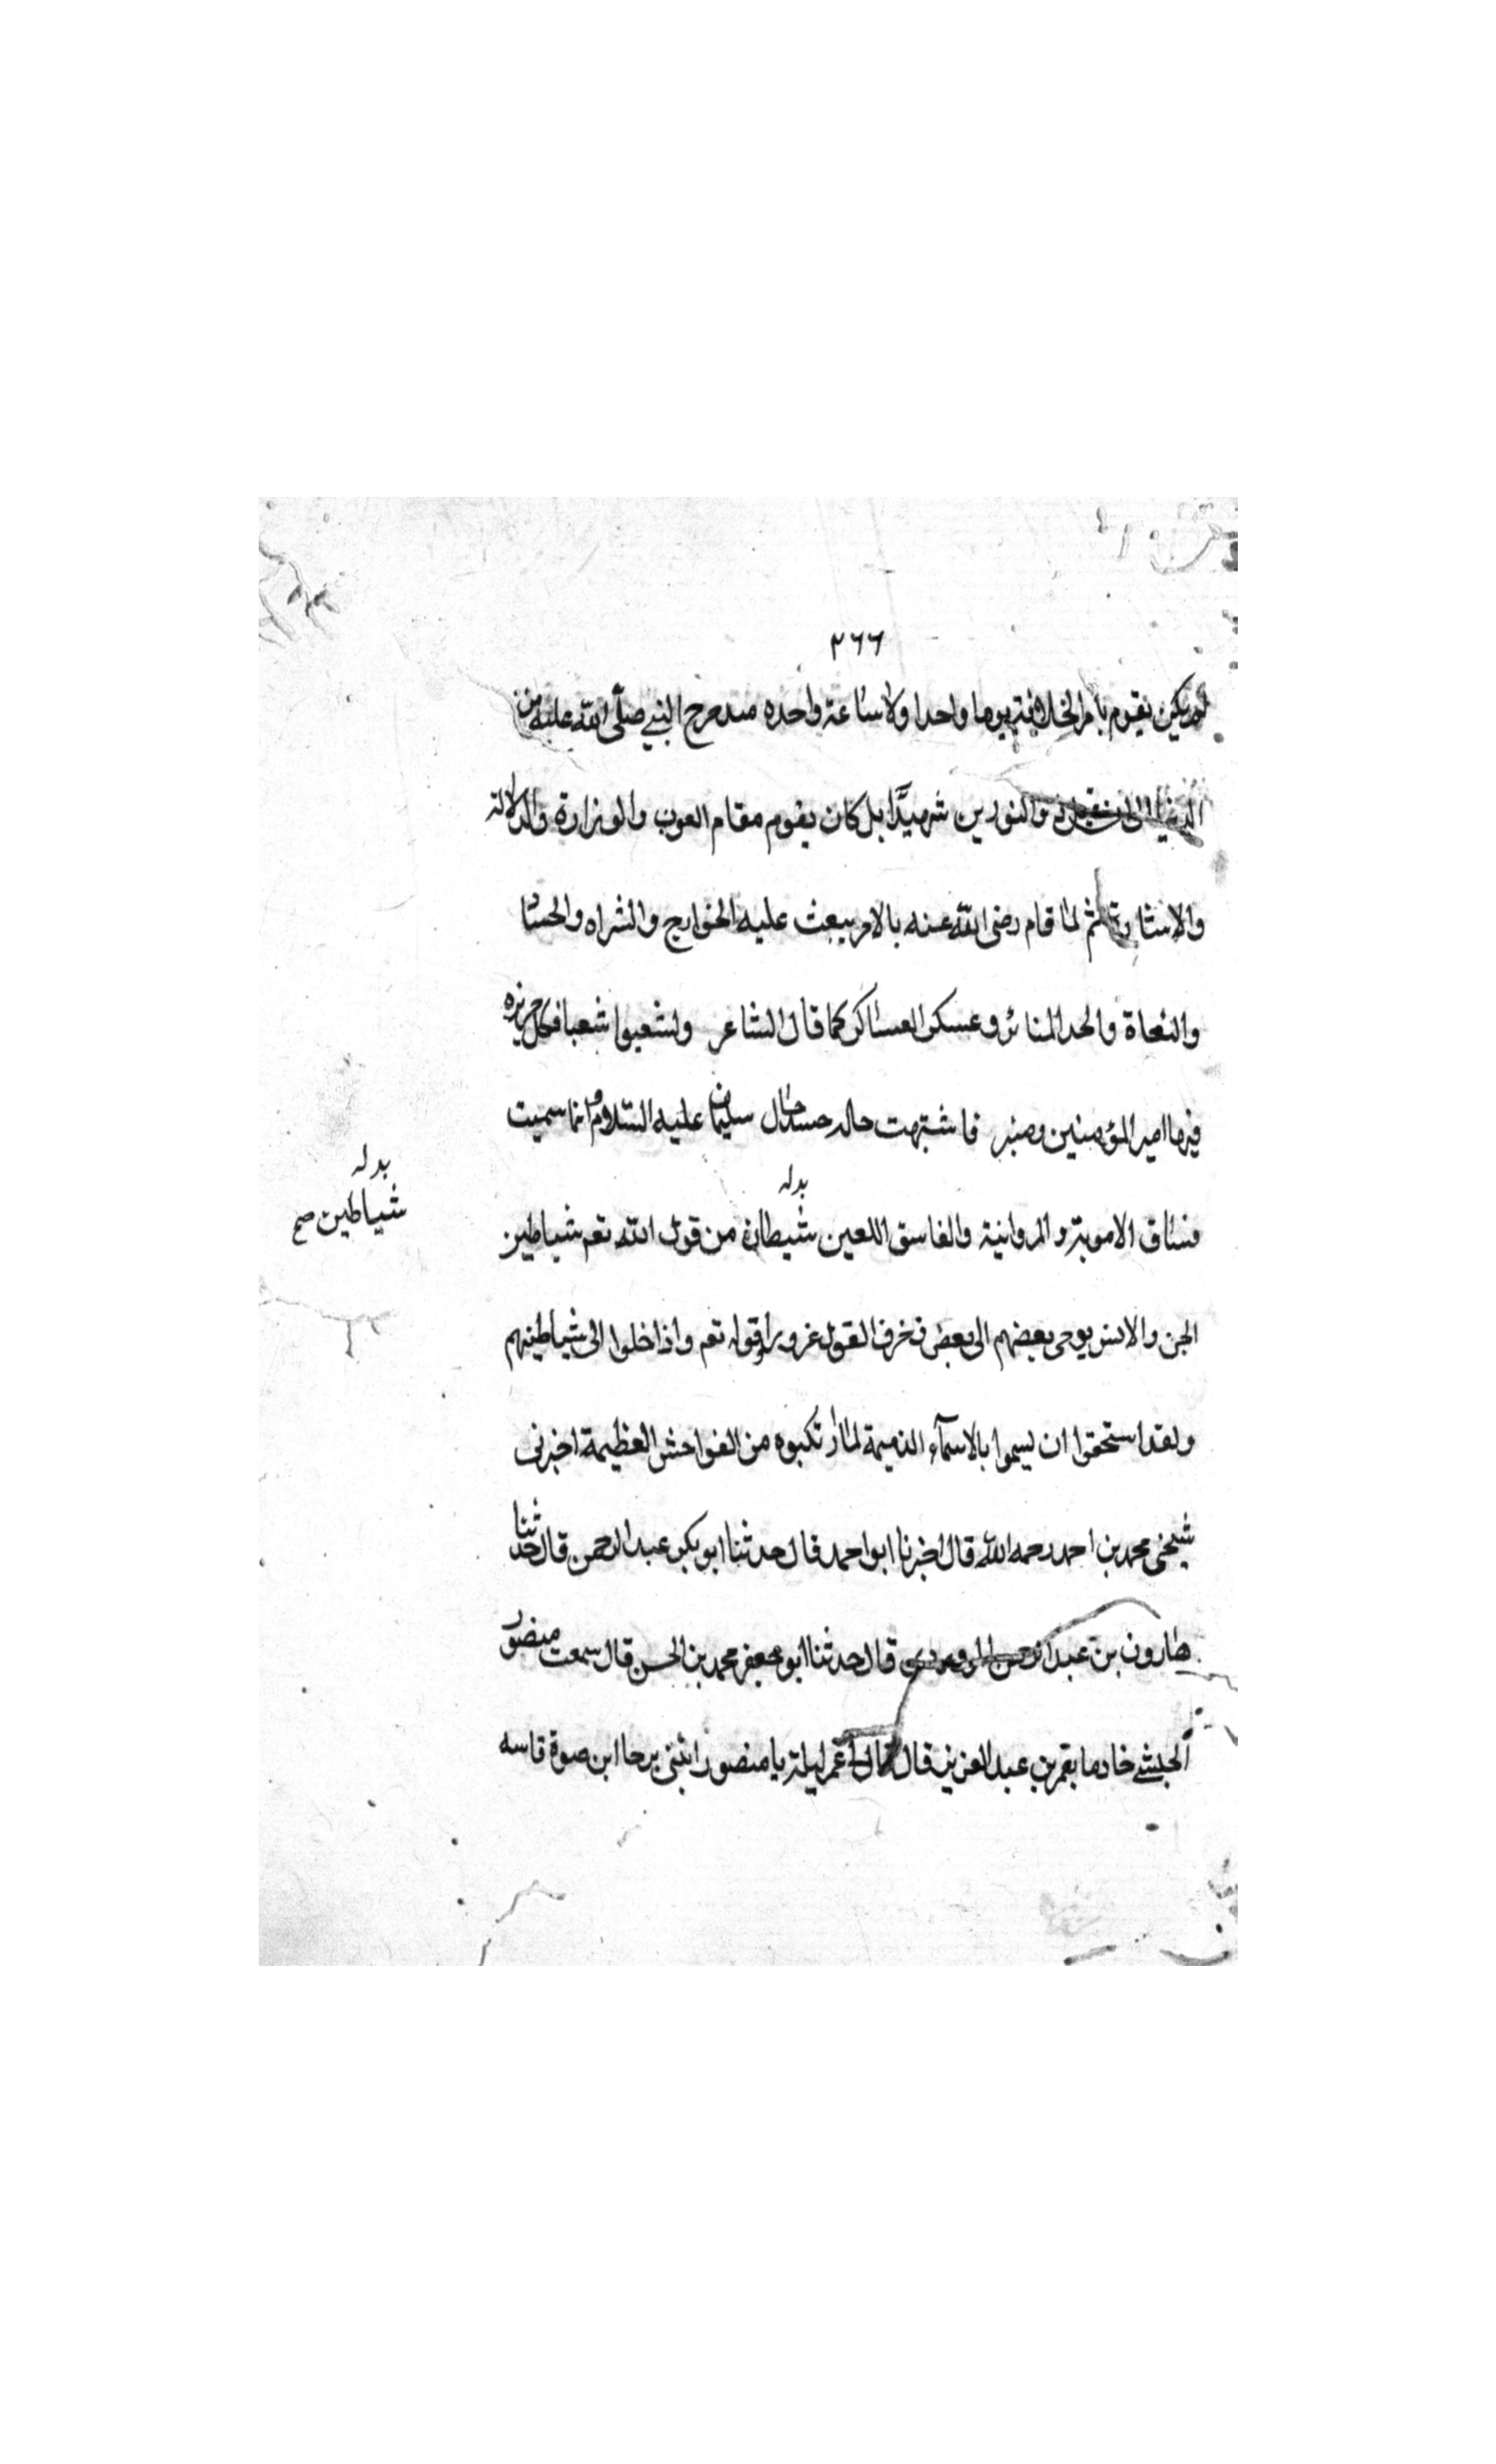 ٢٦٦
لم يكن يقوم بامر الخلافة يوما واحدا ولا ساعة واحده منذ خرج النبي صلى الله عليه من
الدنيا الى ان ذو النورين شهيدًا بل كان يقوم مقام العون والوزارة والدلالة
والاشارة ثم لما قام رضى الله عنه بالامر يبعث عليه الخوارج والشراه والحساد
والبغاة والحد المنائر وعسكر العساكر كما قال الشاعر وتشعبوا شعبا فكل جزيره
فيها امير المؤمنين ومنبر فاشتبهت حاله حسدا حال سليمان عليه السلام وانما سميت
فساق الاموية والمروانية والفاسق اللعين شيطان من قول الله تعم شياطين
بدله
بدله
شياطين صح
الجن والانس يوحى بعضهم الى بعض زخرف القول غرورا وقوله تعم واذا خلوا الى شياطينهم
ولقد استحقوا ان يسموا بالاسمآء الذميمة لما ارتكبوه من الفواحش العظيمة اخبرنى
شيخى محمد بن احمد رحمه الله قال اخبرنا ابو احمد قال حدثنا ابو بكر عبد الرحمن قال حدثنا
هارون بن عبد الرحمن قال حدثنا ابو جعفر محمد بن الحسن قال سمعت منصور
الحبشي خادما بعمر بن عبد العزيز قال قال عمر ليلة يا منصور ائتنى برحا ابن صوة قاسه